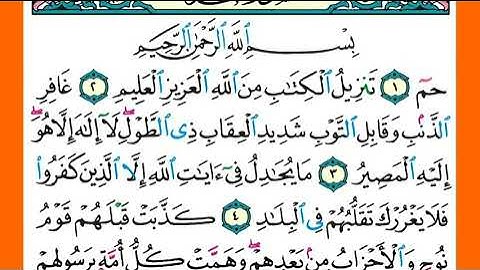 بِسْمِ اللَّهِ الرَّحْمَٰنِ الرَّحِيمِ
حمٓ ١ تَنزِيلُ الْكِتَابِ مِنَ اللَّهِ الْعَزِيزِ الْعَلِيمِ ٢ غَافِرِ
الذَّنبِ وَقَابِلِ التَّوْبِ شَدِيدِ الْعِقَابِ ذِى الطَّوْلِ ۖ لَآ إِلَٰهَ إِلَّا هُوَ ۖ
إِلَيْهِ الْمَصِيرُ ٣ مَا يُجَادِلُ فِىٓ ءَايَاتِ اللَّهِ إِلَّا الَّذِينَ كَفَرُوا
فَلَا يَغْرُرْكَ تَقَلُّبُهُمْ فِى الْبِلَادِ ٤ كَذَّبَتْ قَبْلَهُمْ قَوْمُ
نُوحٍ وَالْأَحْزَابُ مِنۢ بَعْدِهِمْ ۖ وَهَمَّتْ كُلُّ أُمَّةٍۭ بِرَسُولِهِمْ